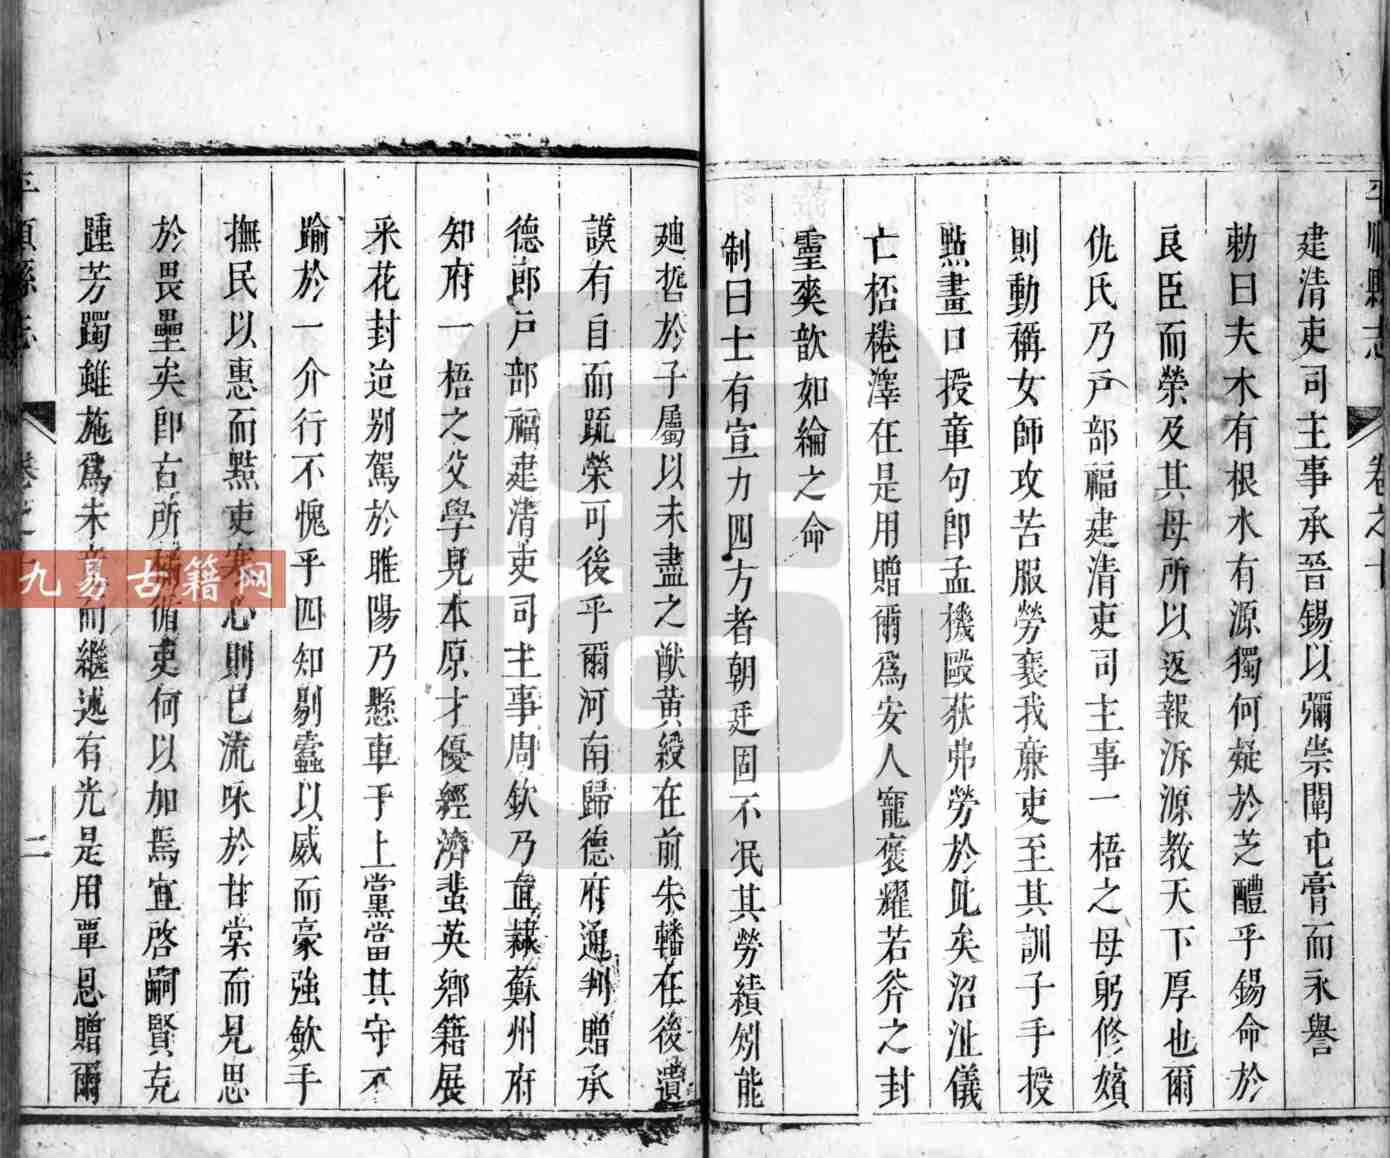 平順縣志
卷之十
建清吏司主事承晉錫以彌崇闡屯膏而永譽
勅曰夫木有根水有源獨何疑於芝醴乎錫命於
良臣而榮及其母所以返報泝源教天下厚也爾
仇氏乃戶部福建清吏司主事一梧之母躬修嬪
則動稱女師攻苦服勞襄我亷吏至其訓子手授
㸃畫口授章句卽孟機毆荻弗勞於此矣沼沚儀
亡桮棬澤在是用贈爾爲安人寵褒耀若斧之封
靈爽歆如綸之命
制曰士有宣力四方者朝廷固不泯其勞績矧能
廸哲於子屬以未盡之猷黃綬在前朱轓在後遺
謨有自而䟽榮可後乎爾河南歸德府通判贈承
德郎戶部福建清吏司主事周欽乃直隷蘇州府
知府一梧之父學見本原才優經濟蜚英鄉籍展
采花封迨别駕於睢陽乃懸車于上黨當其守不
踰於一介行不愧乎四知剔蠧以威而豪強斂手
撫民以惠而黠吏寒心則已流咏於甘棠而見思
於畏壘矣卽古所稱循吏何以加焉宜啓嗣賢克
踵芳躅雖施爲未竟而繼述有光是用覃恩贈爾
平順縣志
卷之
二
九易古籍网